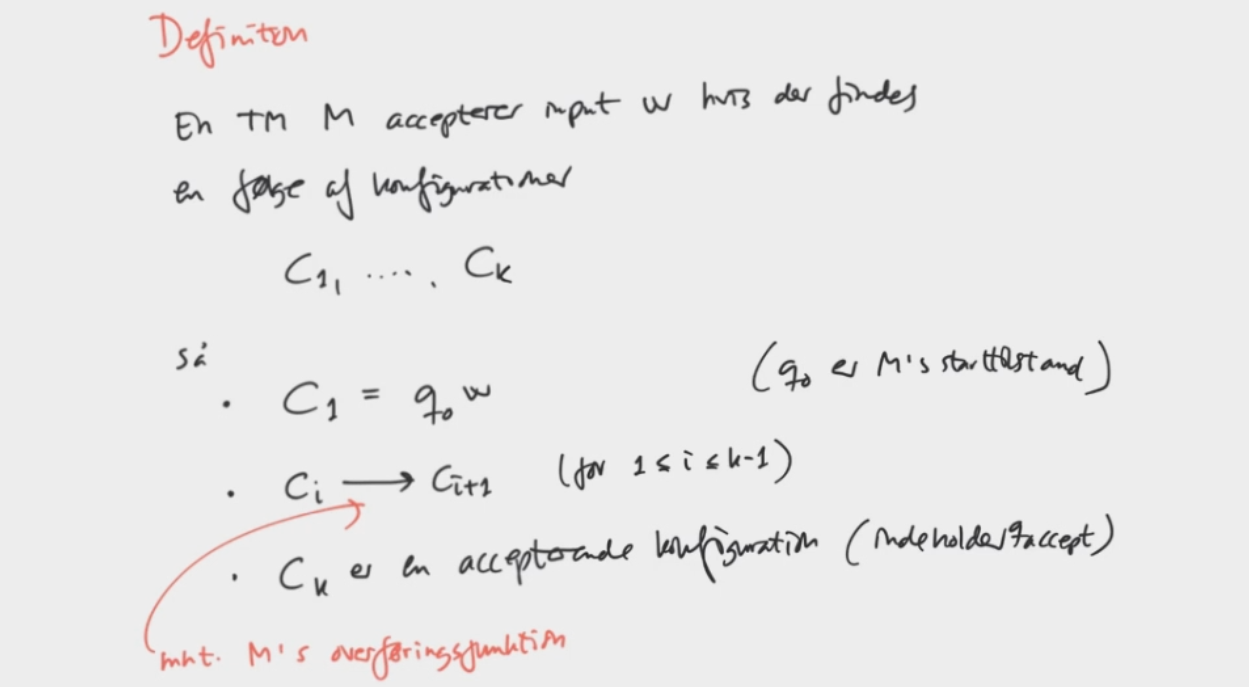 Definition
En TM M accepterer input w hvis der findes
en følge af konfigurationer
C₁, ...., Cₖ
så
• C₁ = q₀w (q₀ er M's starttilstand)
• Cᵢ → Cᵢ₊₁ (for 1 ≤ i ≤ k-1)
• Cₖ er en accepterende konfiguration (indeholder qaccept)
mht. M's overføringsfunktion